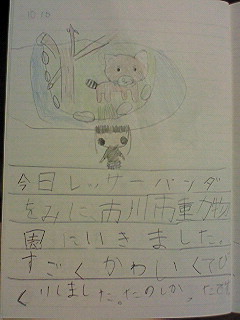 10.10
今日レッサーパンダ
をみに、市川市動がぶつ
園にいきました。
すごくかわいくてび
くりしました。たのしかったです